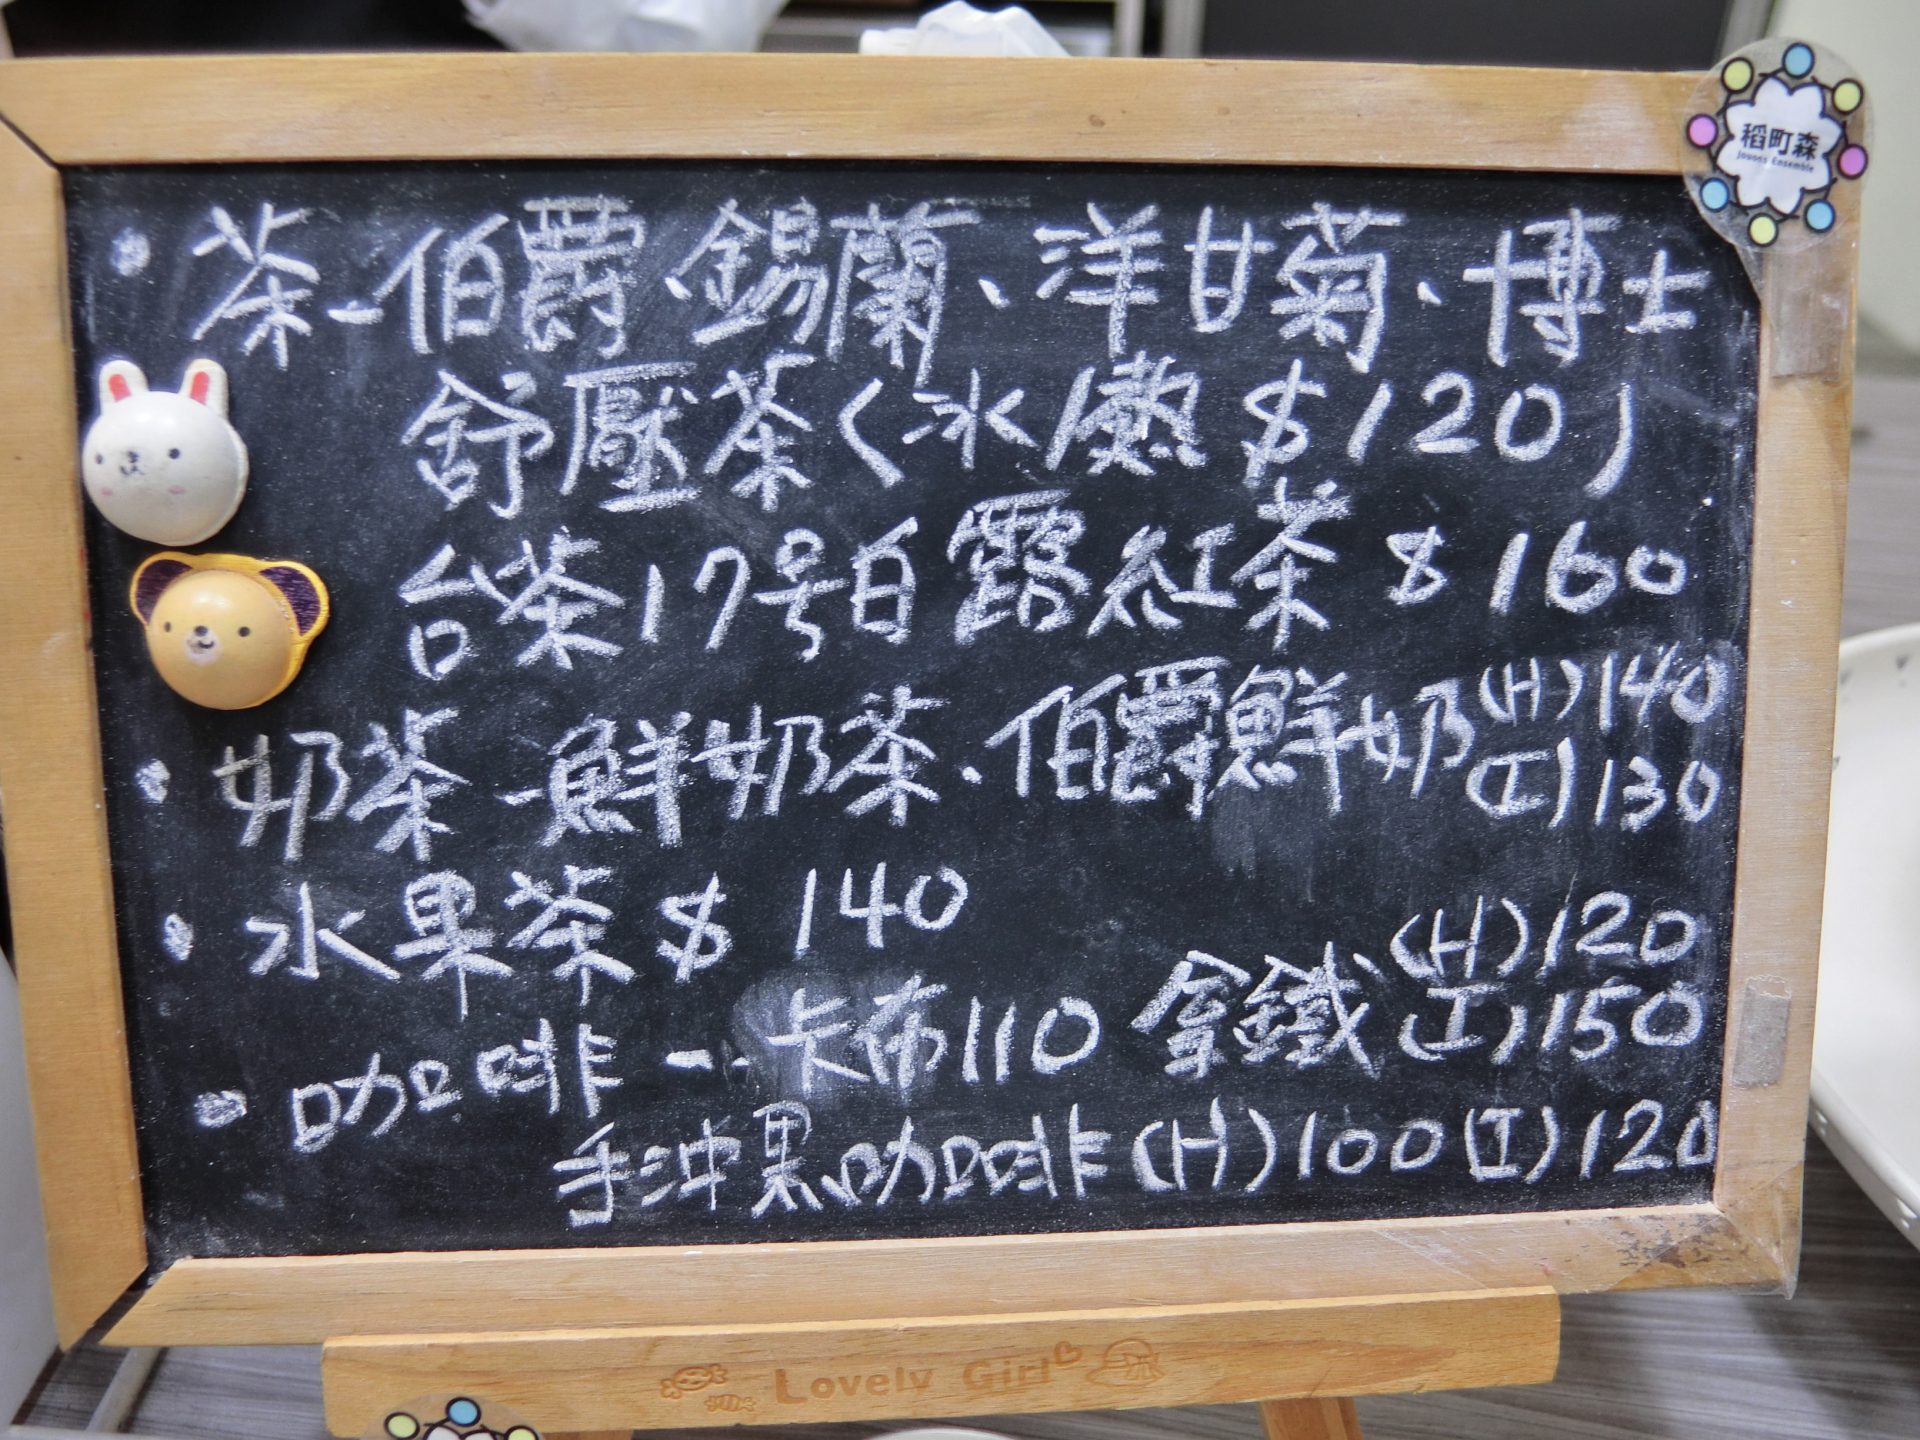 稻町森
Jouons Ensemble
• 茶 - 伯爵、錫蘭、洋甘菊、博士
舒壓茶(冰/熱 $120)
台茶17号白露紅茶 $160
• 奶茶 - 鮮奶茶、伯爵鮮奶 (H)140
(I)130
• 水果茶 $140
• 咖啡 -- 卡布110 拿鐵 (H)120
(I)150
手沖黑咖啡(H)100(I)120
Lovely Girl